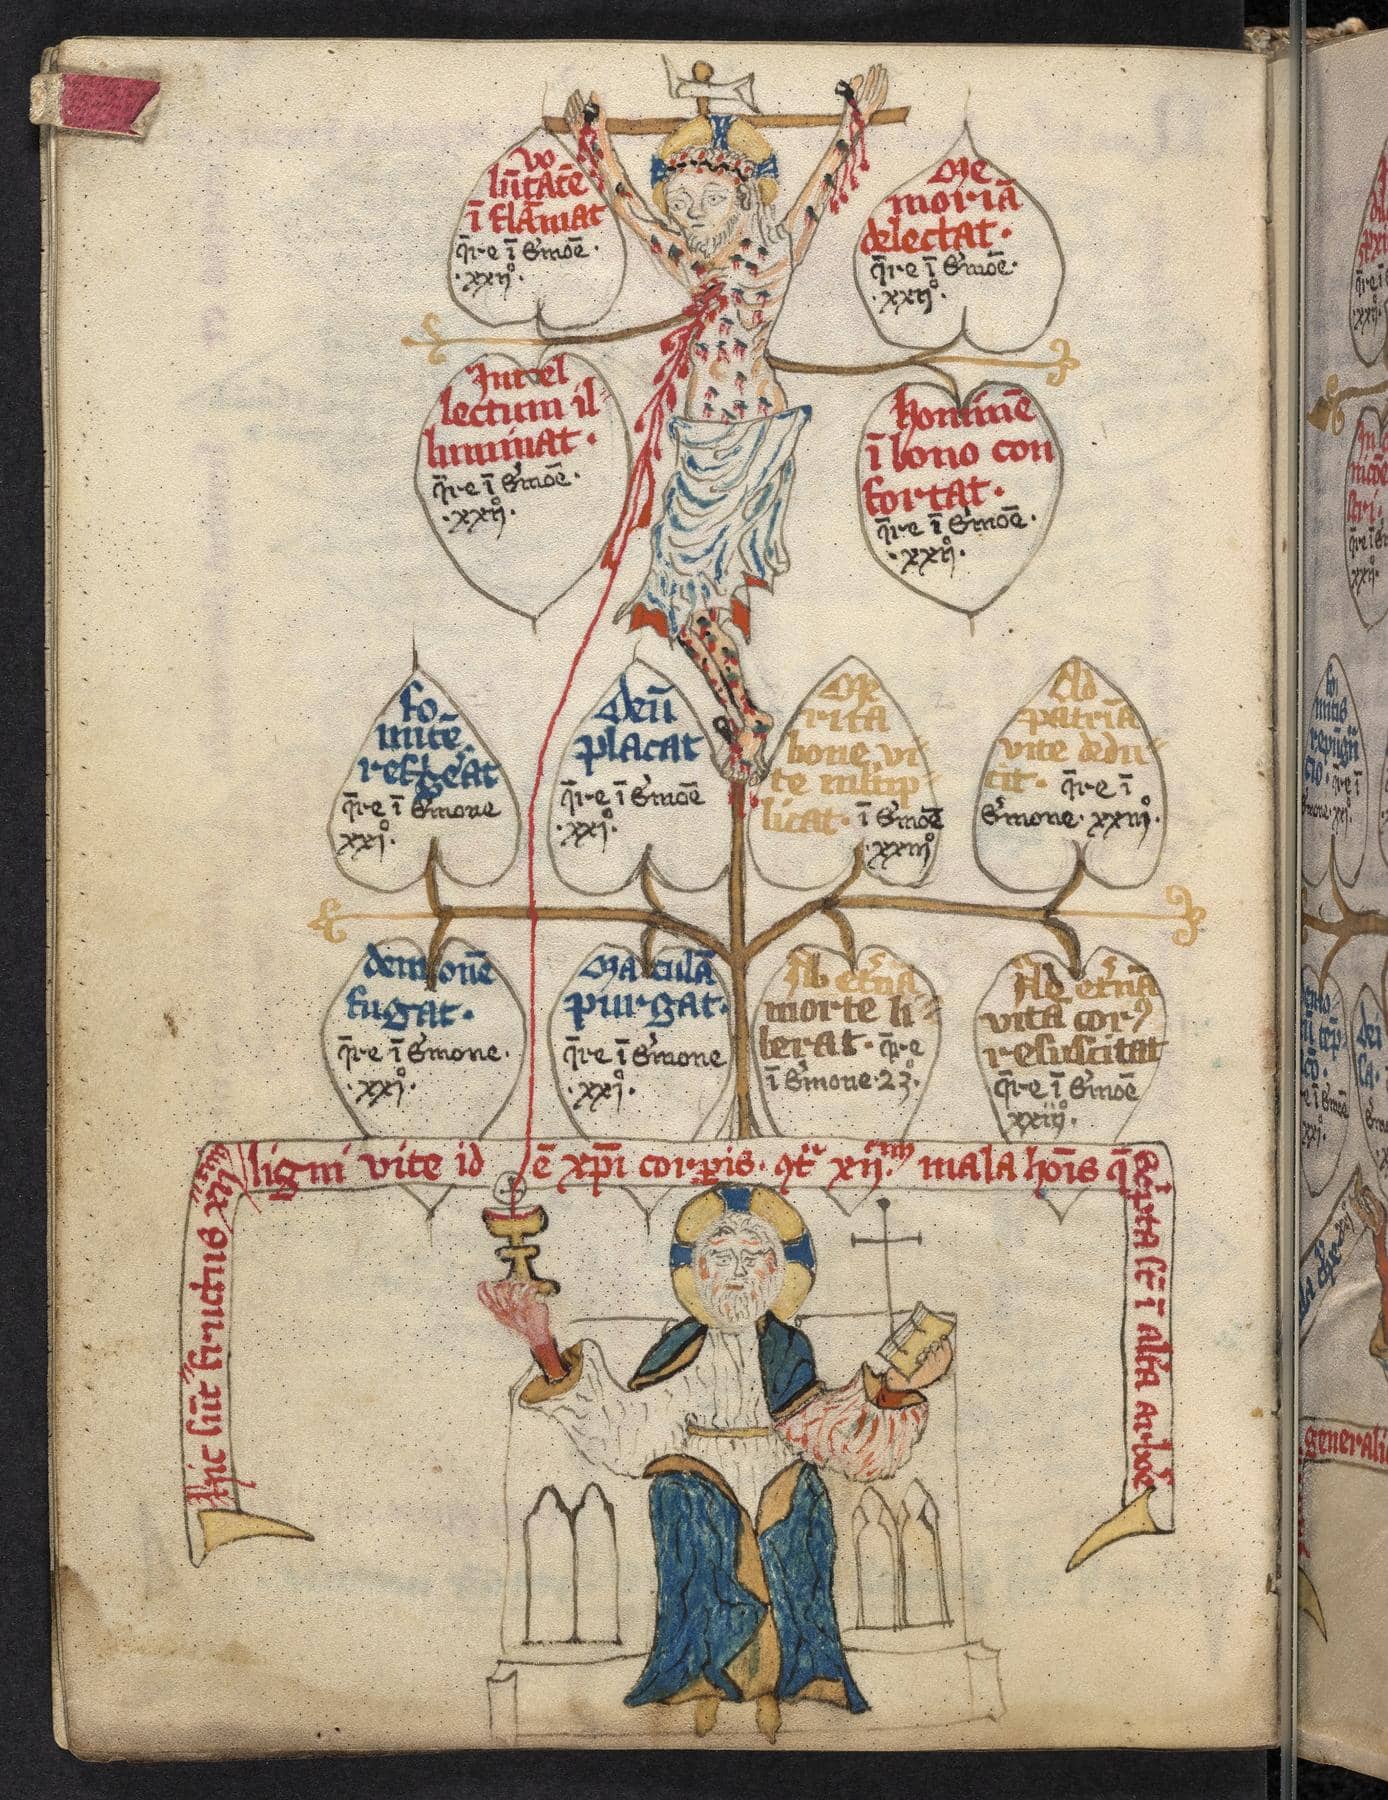 vo
lu̅tate̅
i̅ flam̅at
q̅re i̅ S̓moe̅·
·xxij°·
Me
moria̅
delectat·
q̅re i̅ S̓moe̅·
·xxij°·
Intel
lectum il
luminat·
q̅re i̅ S̓moe̅·
·xxij°·
homine̅
i̅ bono con
fortat·
q̅re i̅ S̓moe̅·
·xxij°·
fo
mite̅
q̅re i̅ S̓mone
xxj°·
deu̅
placat
q̅re i̅ S̓moe̅
·xxj°·
Me
rita
bone vi
te
licat· i̅ S̓moe̅
·xxiij°
Ad
patria̅
vite dedu
cit· q̅re i̅
S̓mone· xxiij°·
demone̅
fugat·
q̅re i̅ S̓mone·
·xxj°·
Macula̅
purgat·
q̅re i̅ S̓mone
·xxj°·
Ab et̓na
morte li
berat· q̅re
i̅ S̓mone·23°·
Ad et̓na̅
vita̅ corꝰ
resuscitat
q̅re i̅ S̓moe̅
xxiij°·
Hic su̅t fructus xij
ligni vite id e̅ xp̅i corp̲is· mala ho̅is q̅
s̅t i̅ alia arbore
generali